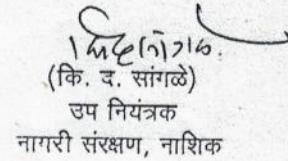 (कि. द. सांगळे)
उप नियंत्रक
नागरी संरक्षण, नाशिक